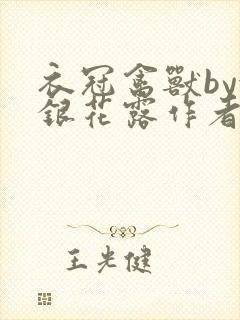 衣冠禽獸by
銀花露作者
王光健